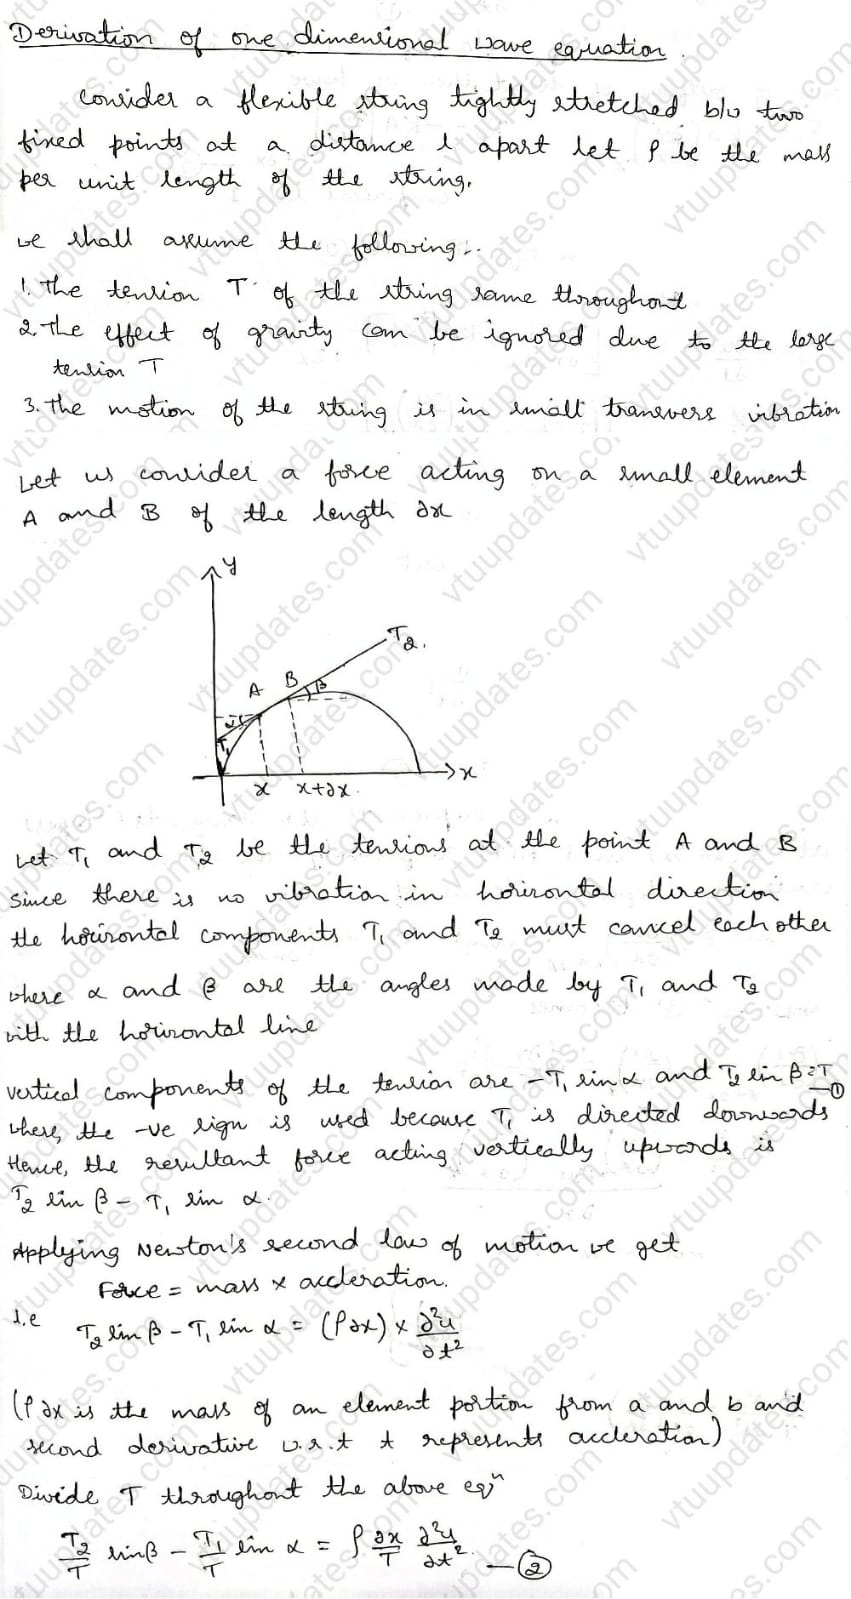 Derivation of one dimensional wave equation.
Consider a flexible string tightly stretched b/w two
fixed points at a distance l apart let ρ be the mass
per unit length of the string.
we shall assume the following:-
1. The tension T of the string same throughout
2. The effect of gravity can be ignored due to the large
tension T
3. The motion of the string is in small transvers vibration
Let us consider a force acting on a small element
A and B of the length ∂x
y
T₂.
B β
A
α
T₁
x x+∂x x
Let T₁ and T₂ be the tensions at the point A and B
Since there is no vibration in horizontal direction
the horizontal components T₁ and T₂ must cancel each other
where α and β are the angles made by T₁ and T₂
with the horizontal line
vertical components of the tension are -T₁ sin α and T₂ sin β = T —①
where, the -ve sign is used because T₁ is directed downwards
Hence, the resultant force acting vertically upwards is
T₂ sin β - T₁ sin α.
Applying Newton's second law of motion we get
Force = mass × accleration.
i.e T₂ sin β - T₁ sin α = (ρ∂x) × ∂²u/∂t²
(ρ∂x is the mass of an element portion from a and b and
second derivative w.r.t t represents accleration)
Divide T throughout the above eqⁿ
T₂/T sinβ - T₁/T sin α = ρ ∂x/T ∂²u/∂t² —②
vtuupdates.com